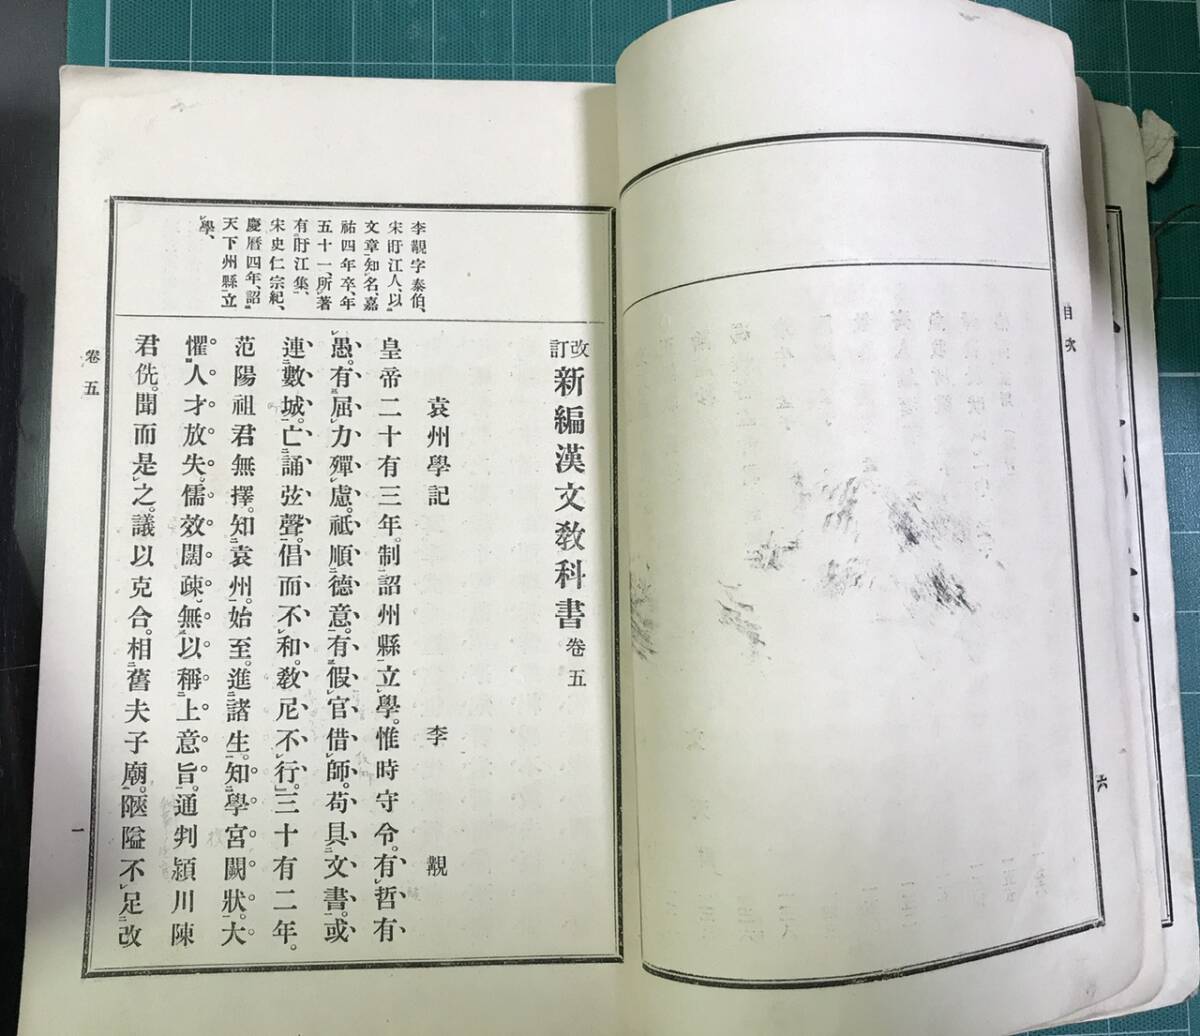 目次
六
改訂新編漢文敎科書 卷五
袁州學記　李覯
皇帝二十有三年。制詔州縣立學。惟時守令。有哲有
愚。有屈力殫慮。祗順德意。有假官借師。苟具文書。或
連數城。亡誦弦聲。倡而不和。敎尼不行。三十有二年。
范陽祖君無擇。知袁州。始至。進諸生。知學宮闕狀。大
懼人才放失。儒效闊疎。無以稱上意旨。通判潁川陳
君侁。聞而是之。議以克合。相舊夫子廟。陿隘不足改
李覯字泰伯、
宋盱江人、以
文章知名嘉
祐四年卒、年
五十一、所著
有盱江集、
宋史仁宗紀、
慶曆四年、詔
天下州縣立
學、
卷五
一